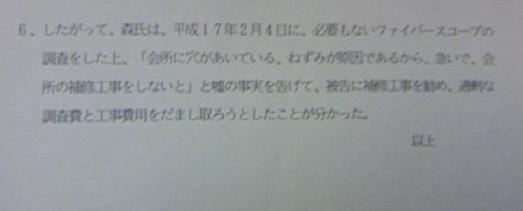 6、したがって、森氏は、平成17年2月4日に、必要もないファイバースコープの
調査をした上、「会所に穴があいている、ねずみが原因であるから、急いで、会
所の補修工事をしないと」と嘘の事実を告げて、被告に補修工事を勧め、過剰な
調査費と工事費用をだまし取ろうとしたことが分かった。
以上